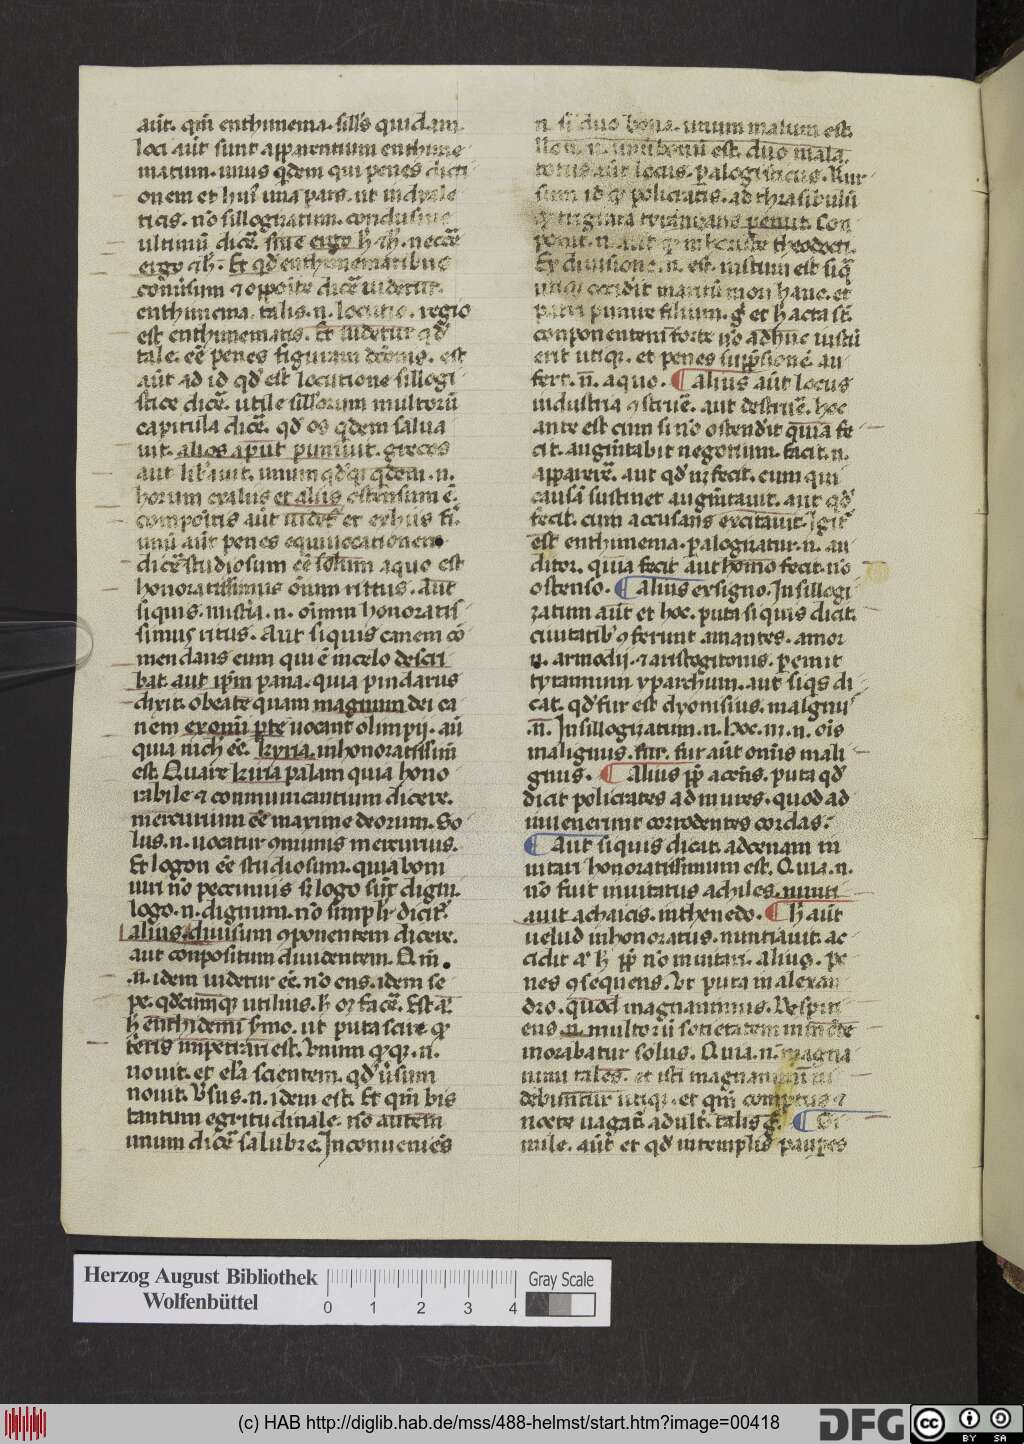 aut. qm enthimema. sills quidam
loci aut sunt apparentium enthime
matum. unus qdem qui penes dicti
onem et hui una pars. ut in dyale
ticis. no sillogizatum. conclusive
ultimu dice. sive ergo h et h. necce
ergo et h. Et qd enthimematibus
conversum et opposite dice videtur.
enthimema. talis. n. locutio. regio
est enthimematis. Et videtur qd
tale. ee penes figuram dconis. est
aut ad id qd est locutione sillogi
stice dice. utile sillorum multoru
capitula dice. qd os qdem salva
vit. alios aput punivit. greces
aut libavit. unum qdqz qdem. n.
horum exalus et alius ostensum e.
compositis aut videt et ex hiis fi.
unu aut penes equivocationem
dice studiosum ee solum a quo est
honoratissimus omnium rittus. aut
siquis. mistia. n. oimm honoratis
simus ritus. Aut siquis canem co
mendans eum qui e in celo descri
bat. aut ipm pana. quia pindarus
dixit. o beate quam magnum dei ca
nem ex omi pte vocant olimpij. au
quia nich ee. kyria. inhonoratissim
est. Quare kiria palam quia hono
rabile et communicantium dicere.
mercurium ee maxime deorum. So
lus. n. vocatur comunis mercurius.
Et logon ee studiosum. quia boni
viri no peccunius s logo sunt digni.
logo. n. dignum. no simplr dicit.
alius. divisum componentem dicere.
aut conpositum dividentem. Qm
.n. idem videtur ee. no ens. idem se
pe. qdcumqz utilius. h oz face. Est a
h enthidemi smo. ut puta scire qz
teris imperari est. Vnum qzqz. n.
novit. et ela scientem. qd usum
novit. Vsus. n. idem est. Et qm bis
tantum egritudinale. no autem
unum dice salubre. Inconveniens
n. si duo bona. unum malum est.
n. unu bonu est. duo mala.
totus aut locus. paloguticus. Rur
sum id qz policratis. ad thrasibulu
qz triginta tyrannans penuit. Con
ponit. n. aut qz in horeste theodoti.
Ex divisione. n. est. iustum est siq
occidit maritum mori hanc. et
patri punire filium. g et h acta st.
componentem forte no adhuc iustu
erit utiqz. et penes suppsione. au
fert. n. a quo. Alius aut locus
industria construe. aut destrue. hoc
ante est cum si no ostendit quia fe
cit. augmtabit negotium. facit. n.
apparere. aut qd n fecit. cum qui
causa sustinet augmtavit. aut qd
fecit. cum accusans excitavit. Igit
est enthimema. palogizatur. n. au
ditor. quia fecit aut homo fecit. no
ostenso. Alius ex signo. In sillogi
zatum aut et hoc. puta siquis dicit.
civitatib conferunt amantes. amor
n. armodij. et aristogitonis. pemit
tyrannum yparchum. aut siqs di
cat. qd fur est dyonisius. malignu
.n. In sillogizatum. n. hoc. m. n. ois
malignus. fur. fur aut omis mali
gnus. Alius pp acens. puta qd
dicit policrates ad mures. quod ad
iuvenerunt corrodentes cordas.
Aut siquis dicat. ad cenam in
vitari honoratissimum est. Quia. n.
no fuit invitatus achiles. nunti
avit achaicis. in thenedo. h aut
velud inhonoratus. nuntiavit. ac
cidit a h pp no invitari. Alius. pe
nes consequens. Vt puta in alexan
dro. quod magnanimus. Despiti
ens. n. multoru societatem
morabatur solus. Quia. n. magna
nimi tales. et isti magnanimi vi
debuntur utiqz. et qm comptus et
nocte vagat. adult. talis g. Si
mile. aut et qd in templis paupes
Herzog August Bibliothek
Wolfenbüttel
0 1 2 3 4
Gray Scale
(c) HAB http://diglib.hab.de/mss/488-helmst/start.htm?image=00418
DFG
cc BY SA